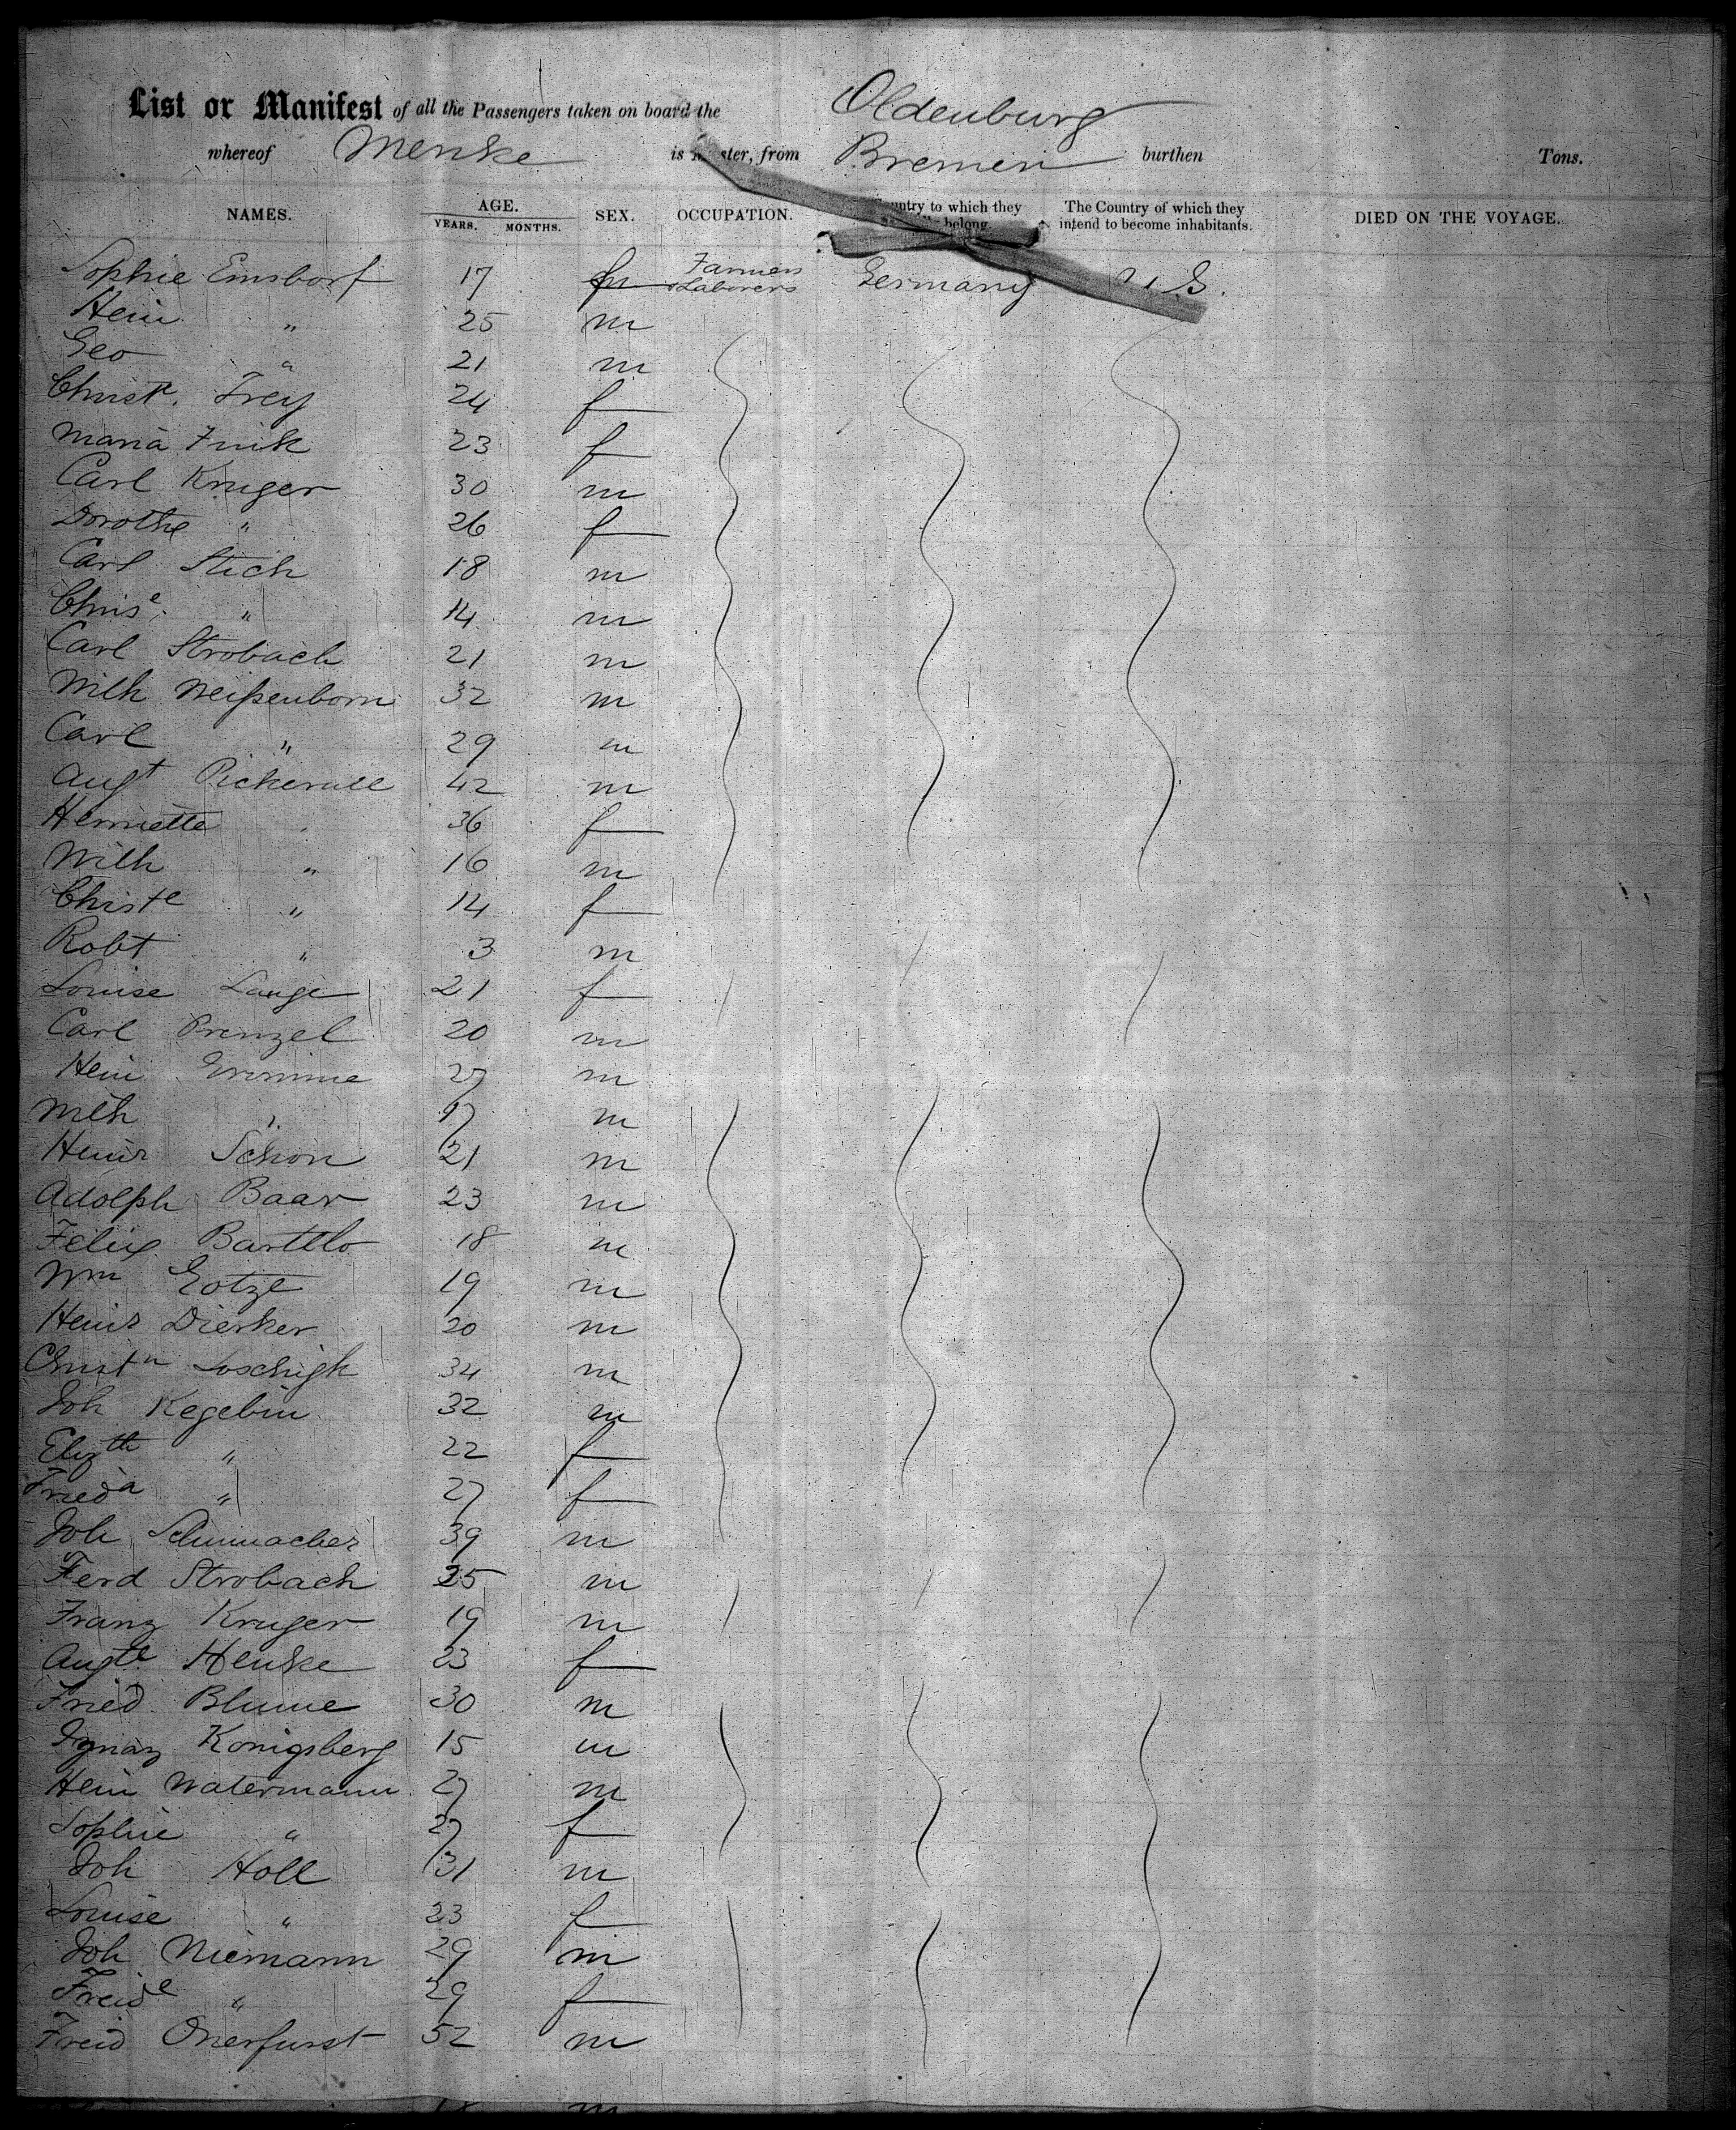 List or Manifest of all the Passengers taken on board the Oldenburg
whereof Menke is master, from Bremen burthen Tons.
NAMES. AGE. YEARS. MONTHS. SEX. OCCUPATION. Country to which they belong. The Country of which they intend to become inhabitants. DIED ON THE VOYAGE.
Sophie Emsdorf 17 f Farmers Laborers Germany U.S.
Hein " 25 m
Geo " 21 m
Christe. Frey 24 f
Maria Fink 23 f
Carl Kruger 30 m
Dorothe " 26 f
Carl Stich 18 m
Chrise. " 14 m
Carl Strobach 21 m
Wilh Weißenborn 32 m
Carl " 29 m
Augt 42 m
Henriette 36 f
Wilh " 16 m
Christe " 14 f
Robt " 3 m
Louise Lange 21 f
Carl Prenzel 20 m
Hein 27 m
Wilh " 17 m
Heinr Schon 21 m
Adolph Baar 23 m
Felix Barttlo 18 m
Wm Gotze 19 m
Heinr Dierker 20 m
Christn Loschigk 34 m
Joh Kegebin 32 m
Elizth " 22 f
Frieda " 27 f
Joh Schumacher 39 m
Ferd Strobach 25 m
Franz Kruger 19 m
Augte Henke 23 f
Fried Blume 30 m
Ignaz Konigsberg 15 m
Hein Watermann 27 m
Sophie " 27 f
Joh Holl 31 m
Louise " 23 f
Joh Niemann 29 m
Freide " 29 f
Freid Onerfurst 52 m